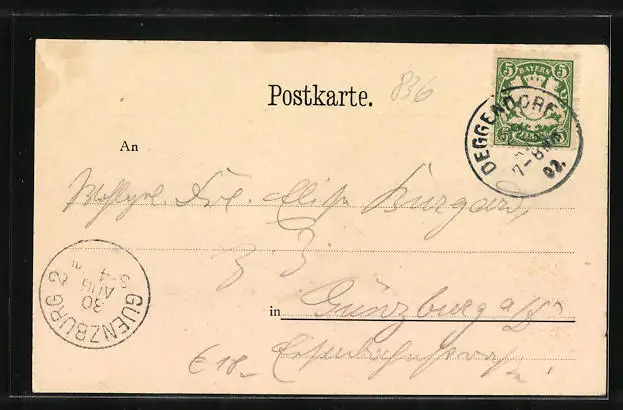 836
5 BAYERN 5
5 PFENNIG 5
DEGGENDORF
7-8
02.
Postkarte.
An
Wohlgeb. Frl. Elise Burgard,
z. Z.
in Günzburg a/D
GUENZBURG 2
30
AUG
3-4
€ 18-